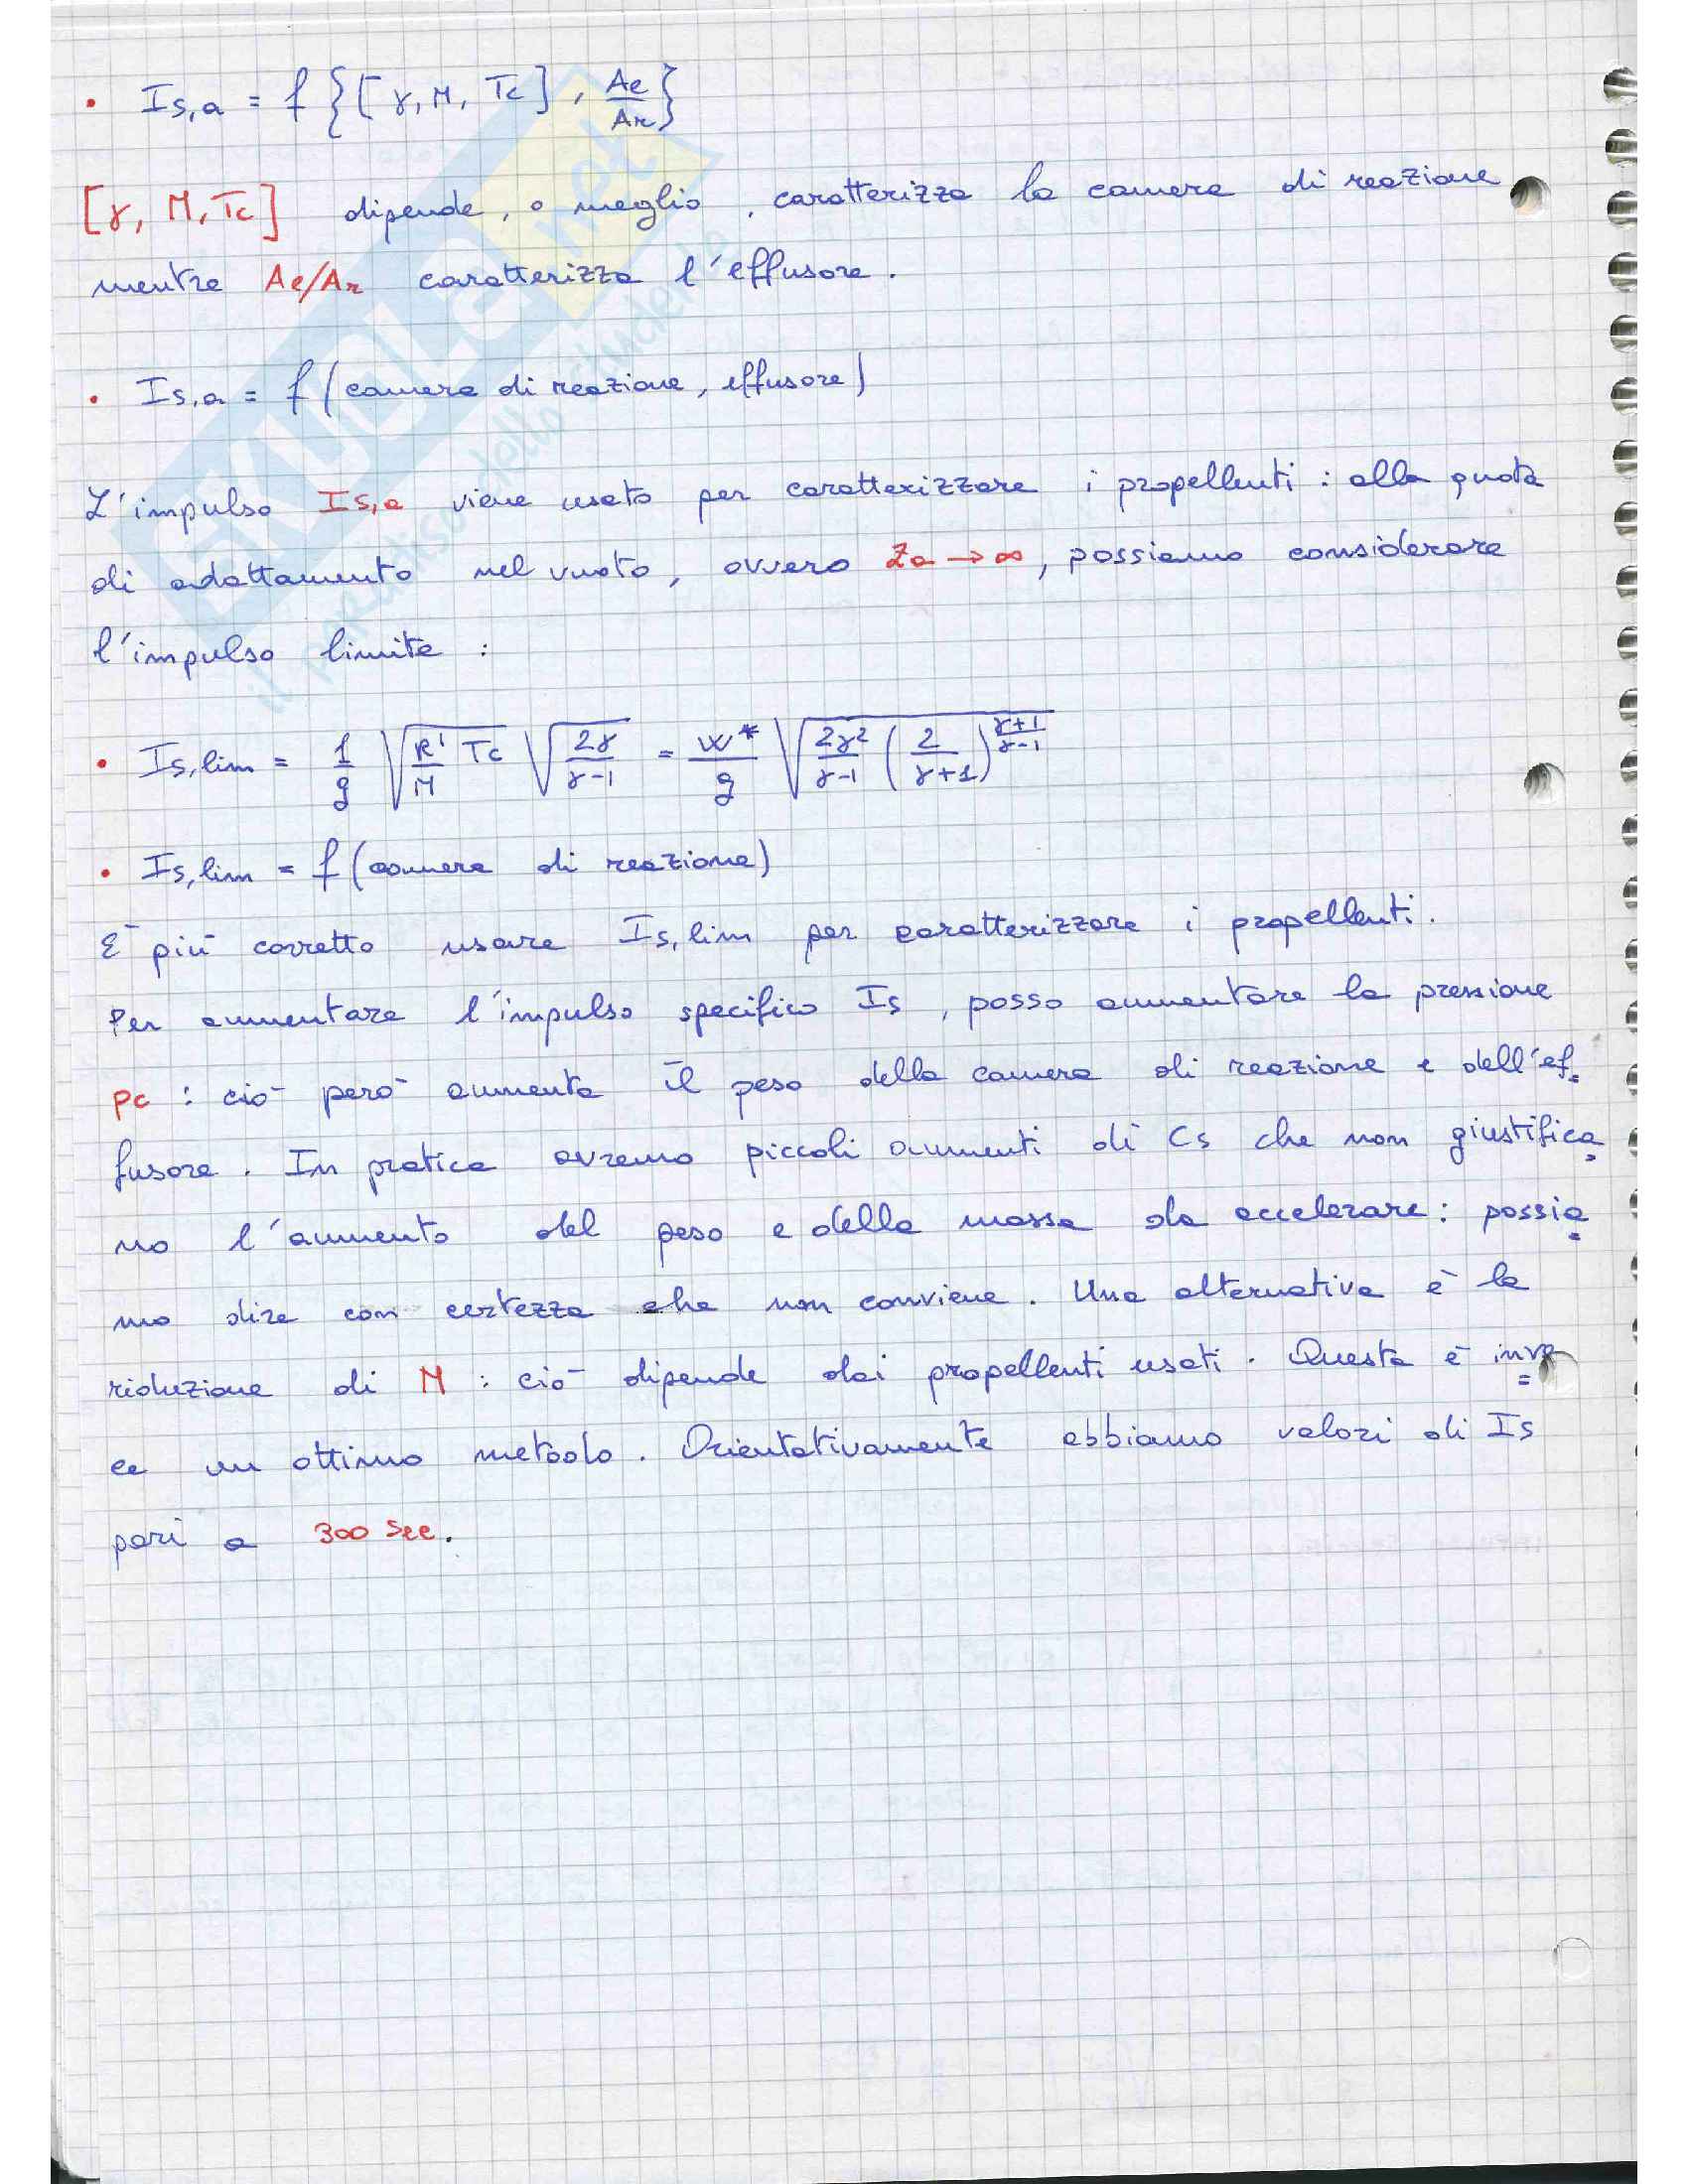 • Is,a = f {[γ, M, Tc], Ae/Ar}
[γ, M, Tc] dipende, o meglio, caratterizza la camera di reazione
mentre Ae/Ar caratterizza l'effusore.
• Is,a = f (camera di reazione, effusore)
L'impulso Is,a viene usato per caratterizzare i propellenti: alla quota
di adattamento nel vuoto, ovvero Za → ∞, possiamo considerare
l'impulso limite:
• Is,lim = 1/g √(R'/M Tc) √(2γ/(γ-1)) = W*/g √(2γ²/(γ-1) (2/(γ+1))^((γ+1)/(γ-1)))
• Is,lim = f (camera di reazione)
E' più corretto usare Is,lim per caratterizzare i propellenti.
Per aumentare l'impulso specifico Is, posso aumentare la pressione
pc: ciò però aumenta il peso della camera di reazione e dell'ef=
fusore. In pratica avremo piccoli aumenti di Cs che non giustifica=
no l'aumento del peso e della massa da accelerare: possia=
mo dire con certezza che non conviene. Una alternativa è la
riduzione di M: ciò dipende dai propellenti usati. Questa è inve=
ce un ottimo metodo. Orientativamente abbiamo valori di Is
pari a 300 sec.
SKUOLA.net
il paradiso dello studente